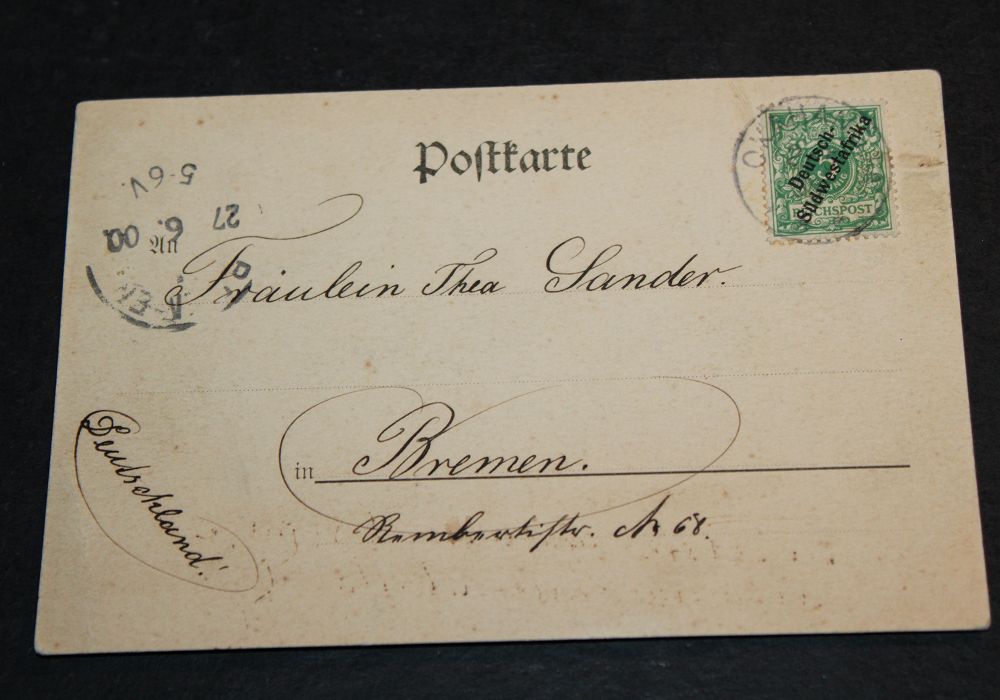 Postkarte
Deutsch-
Südwestafrika
REICHSPOST
5-6V.
27
6.00
An
Fräulein Thea Sander.
in Bremen.
Rembertistr. № 68.
Deutschland!